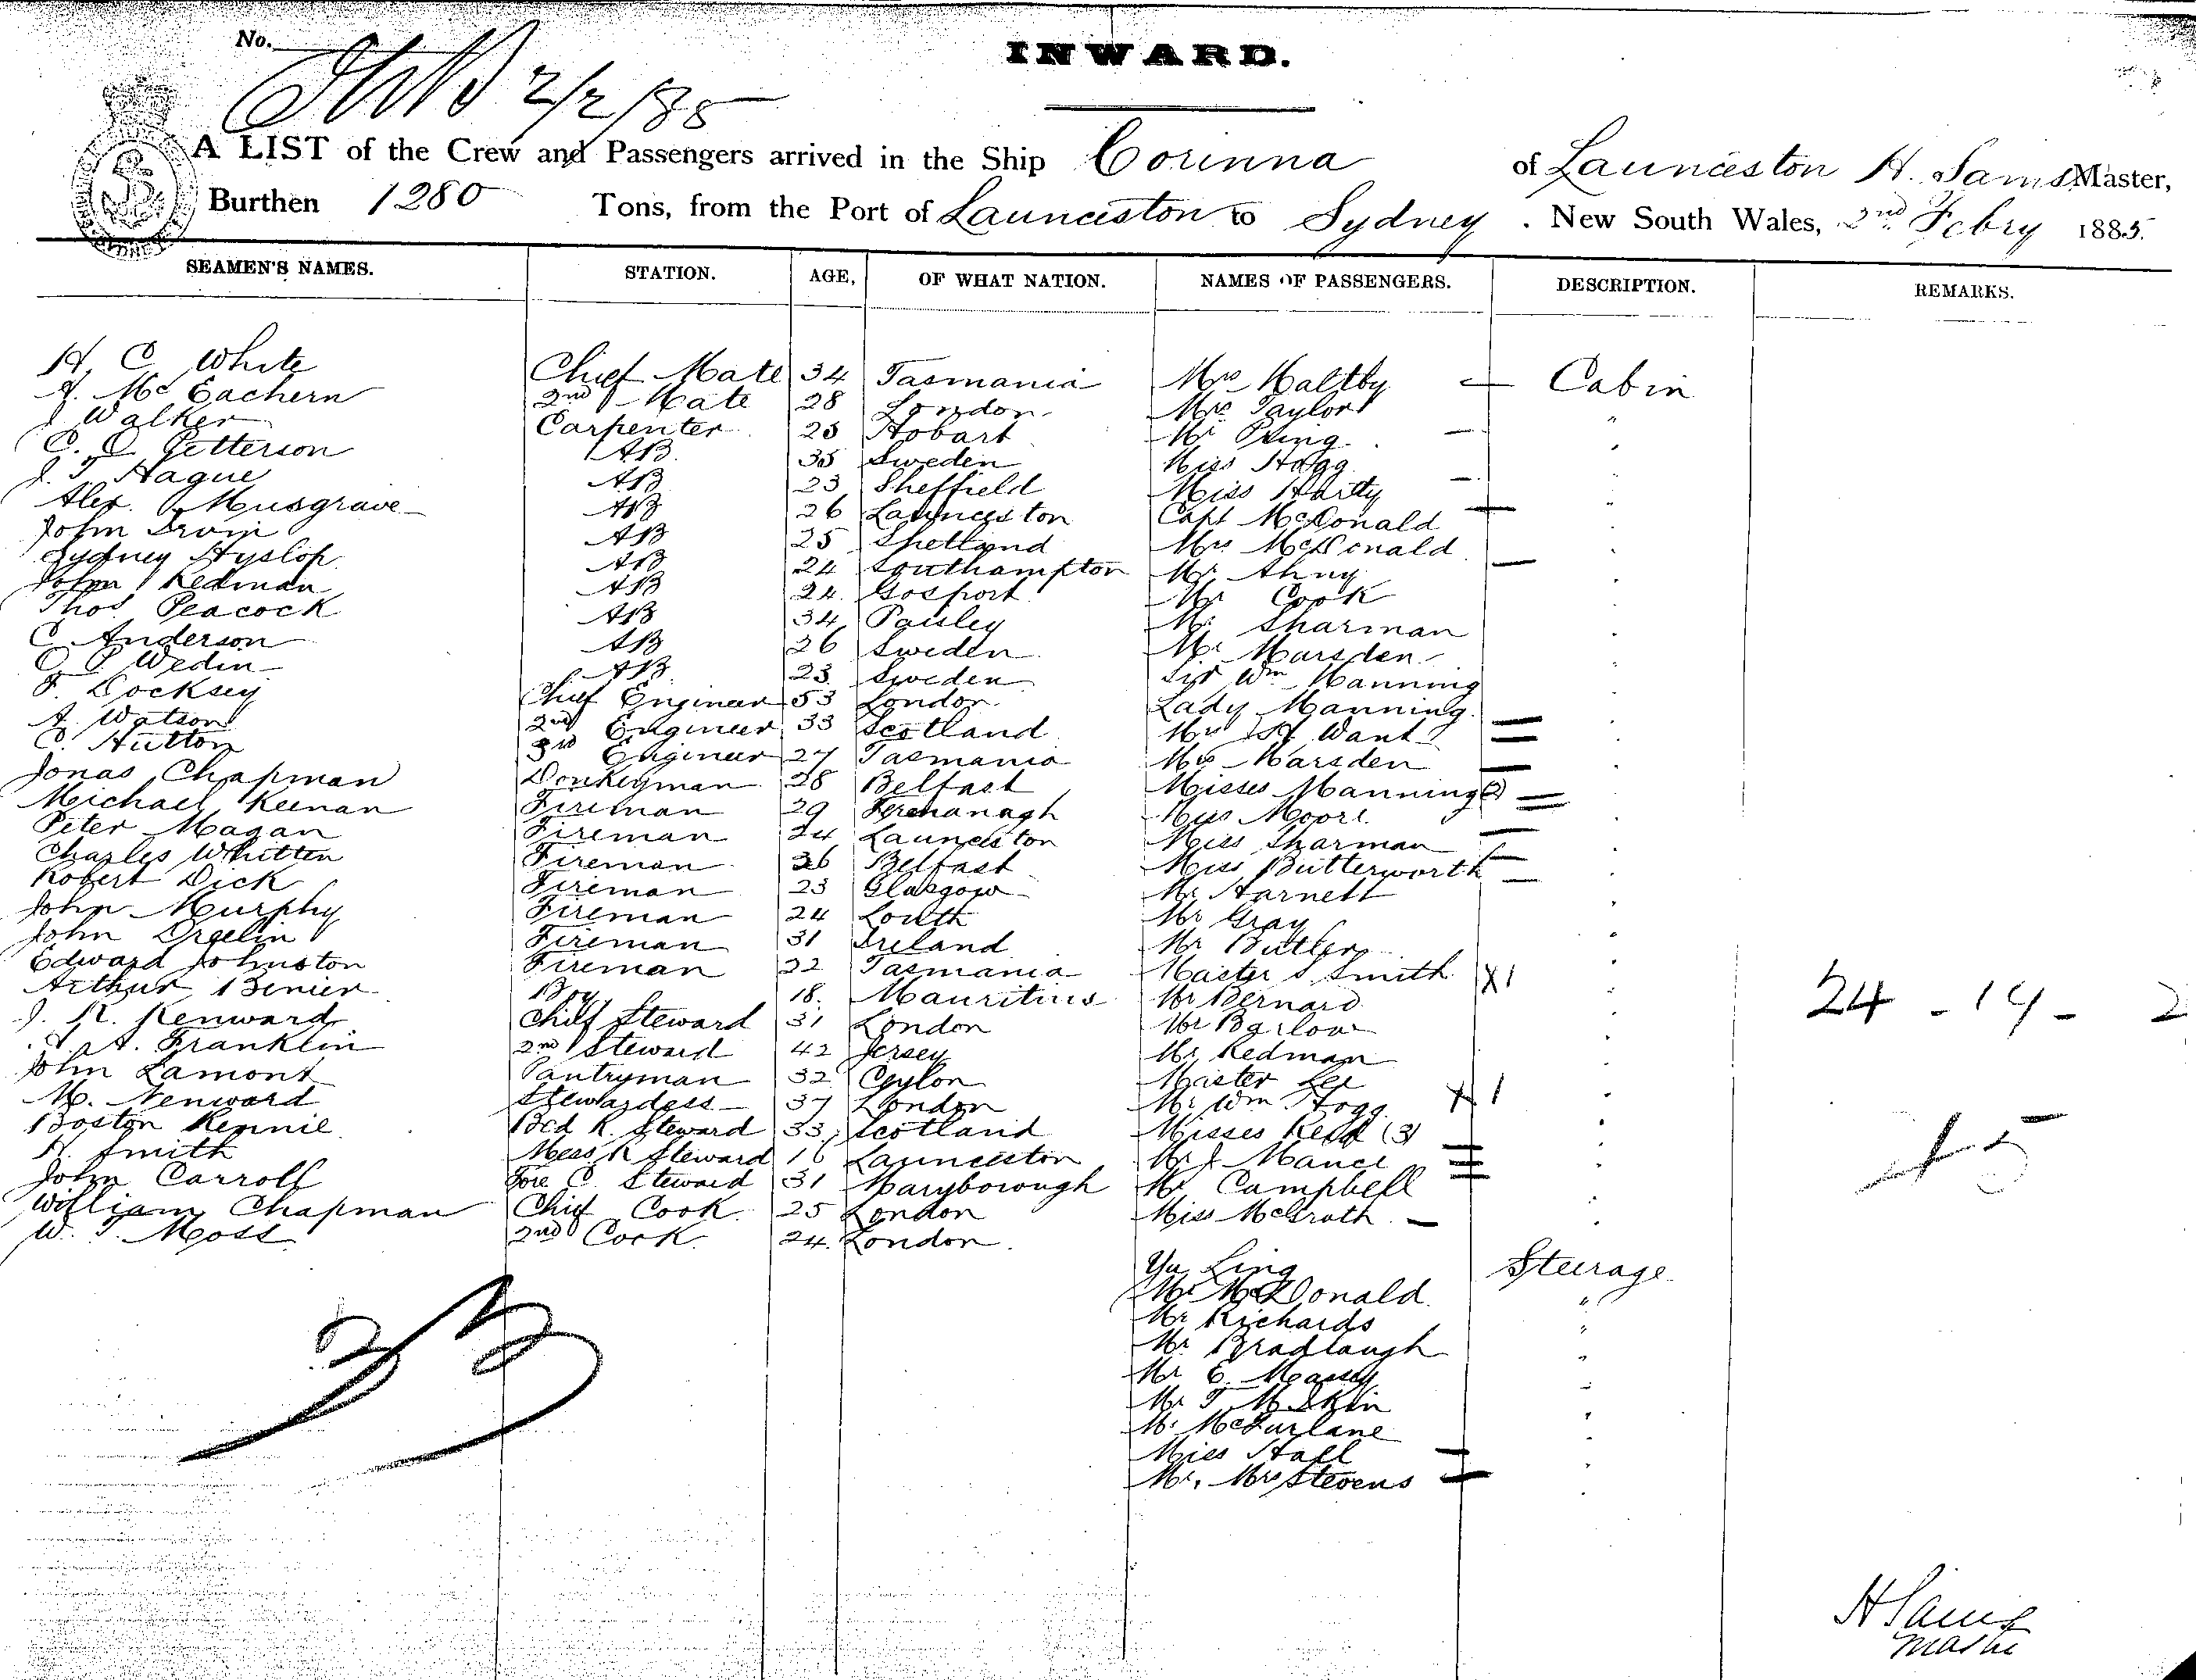 No.
INWARD.
2/2/85
A LIST of the Crew and Passengers arrived in the Ship Corinna of Launceston H. Sams Master,
Burthen 1280 Tons, from the Port of Launceston to Sydney . New South Wales, 2nd Febry 1885.
SEAMEN'S NAMES. STATION. AGE, OF WHAT NATION. NAMES OF PASSENGERS. DESCRIPTION. REMARKS.
H. C. White Chief Mate 34 Tasmania Mrs Maltby — Cabin
A. Mc Eachern 2nd Mate 28 London Mrs Taylor "
J Walker Carpenter 25 Hobart Mr Pring
C. C. Petterson AB 35 Sweden Miss Hogg
J. T Hague AB 23 Sheffield Miss Hartty
Alex. Musgrave AB 26 Launceston Capt McDonald
John Irvin AB 25 Shetland Mrs McDonald
Sydney Hyslop AB 24 Southampton Mr Ahny
John Redman AB 24. Gosport Mr Cook
Thos Peacock AB 34 Paisley Mr Sharman
C. Anderson AB 26 Sweden Mr Marsden
O. P. Wedin AB 23 Sweden Sir Wm Manning
F. Docksey Chief Engineer 53 London. Lady Manning
A. Watson 2nd Engineer 33 Scotland Want
C. Hutton 3rd Engineer 27 Tasmania Mrs Marsden
Jonas Chapman Donkeyman 28 Belfast Misses Manning (2)
Michael Keenan Fireman 29 Fermanagh Miss Moore
Peter Magan Fireman 24 Launceston Miss Sharman
Charles Whitten Fireman 26 Belfast Miss Butterworth
Robert Dick Fireman 23 Glasgow Mr Harnett
John Murphy Fireman 24 Louth Mr Gray
John Fireman 31 Ireland Mr Butler
Edward Johnston Fireman 22 Tasmania Master S. Smith X1
Arthur Benier Boy 18. Mauritius Mr Bernard 24 - 14 - 2
J. R. Kenward Chief Steward 31 London Mr Barlow
A. Franklin 2nd Steward 42 Jersey Mr Redman
John Lamont Pantryman 32 Ceylon Master Lee X1
M. Kenward Stewardess 37 London Mr Wm Hogg
Boston Rennie Bed R Steward 33 Scotland Misses (3)
H. Smith Mess R Steward 16 Launceston Mr J Mance
John Carroll Fore C. Steward 31 Maryborough Mr Campbell
William Chapman Chief Cook 25 London Miss McGrath
W. T. Moss 2nd Cook 24. London.
Yu Ling Steerage
Mr McDonald "
Mr Richards "
Mr Bradlaugh "
Mr E. Massy
Mr T.
Mr McFarlane
Miss Hall
Mr, Mrs Stevens
33
H Sams
Master